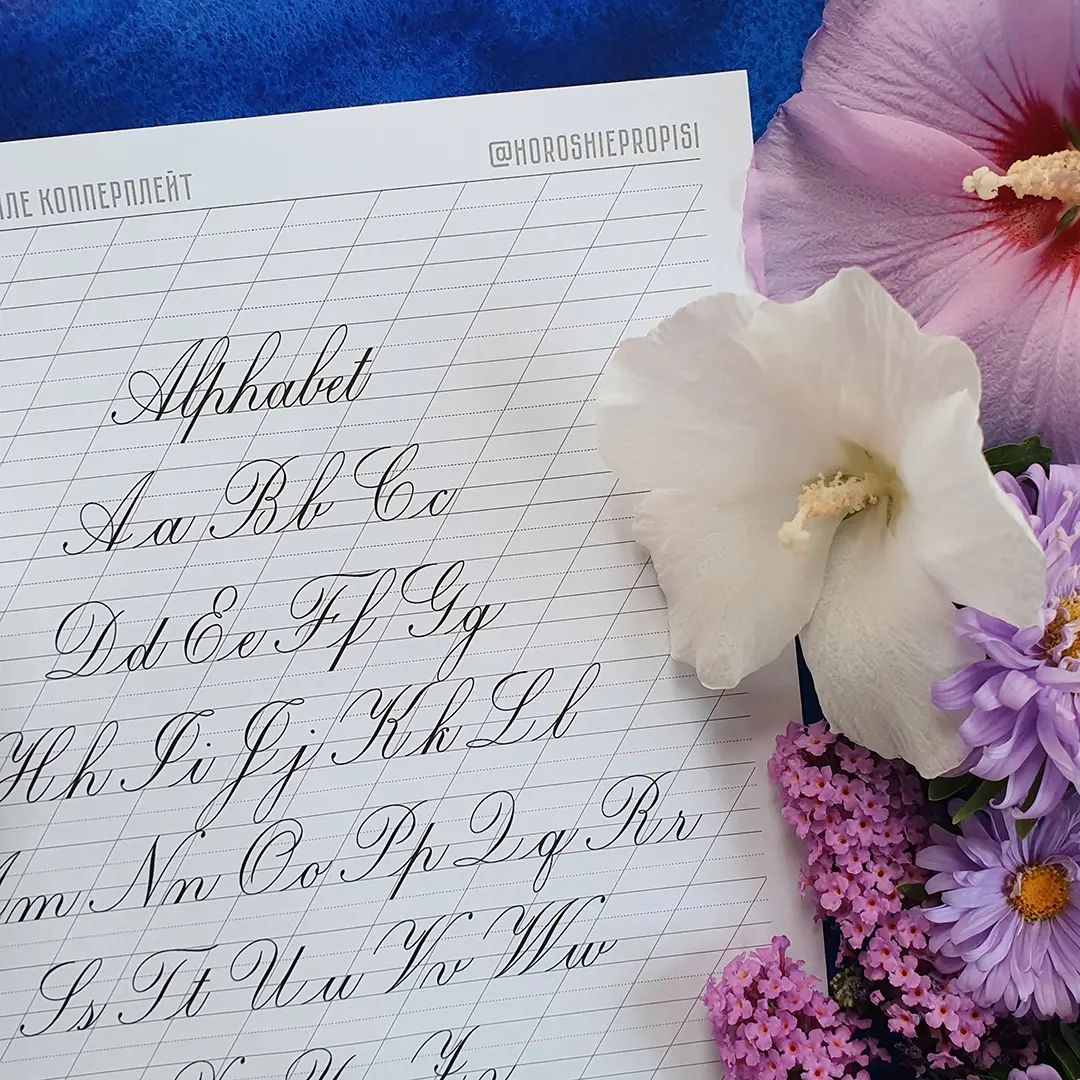 КОППЕРПЛЕЙТ
@HOROSHIEPROPISI
Alphabet
Aa Bb Cc
Dd Ee Ff Gg
Hh Ii Jj Kk Ll
m Nn Oo Pp Qq Rr
Ss Tt Uu Vv Ww